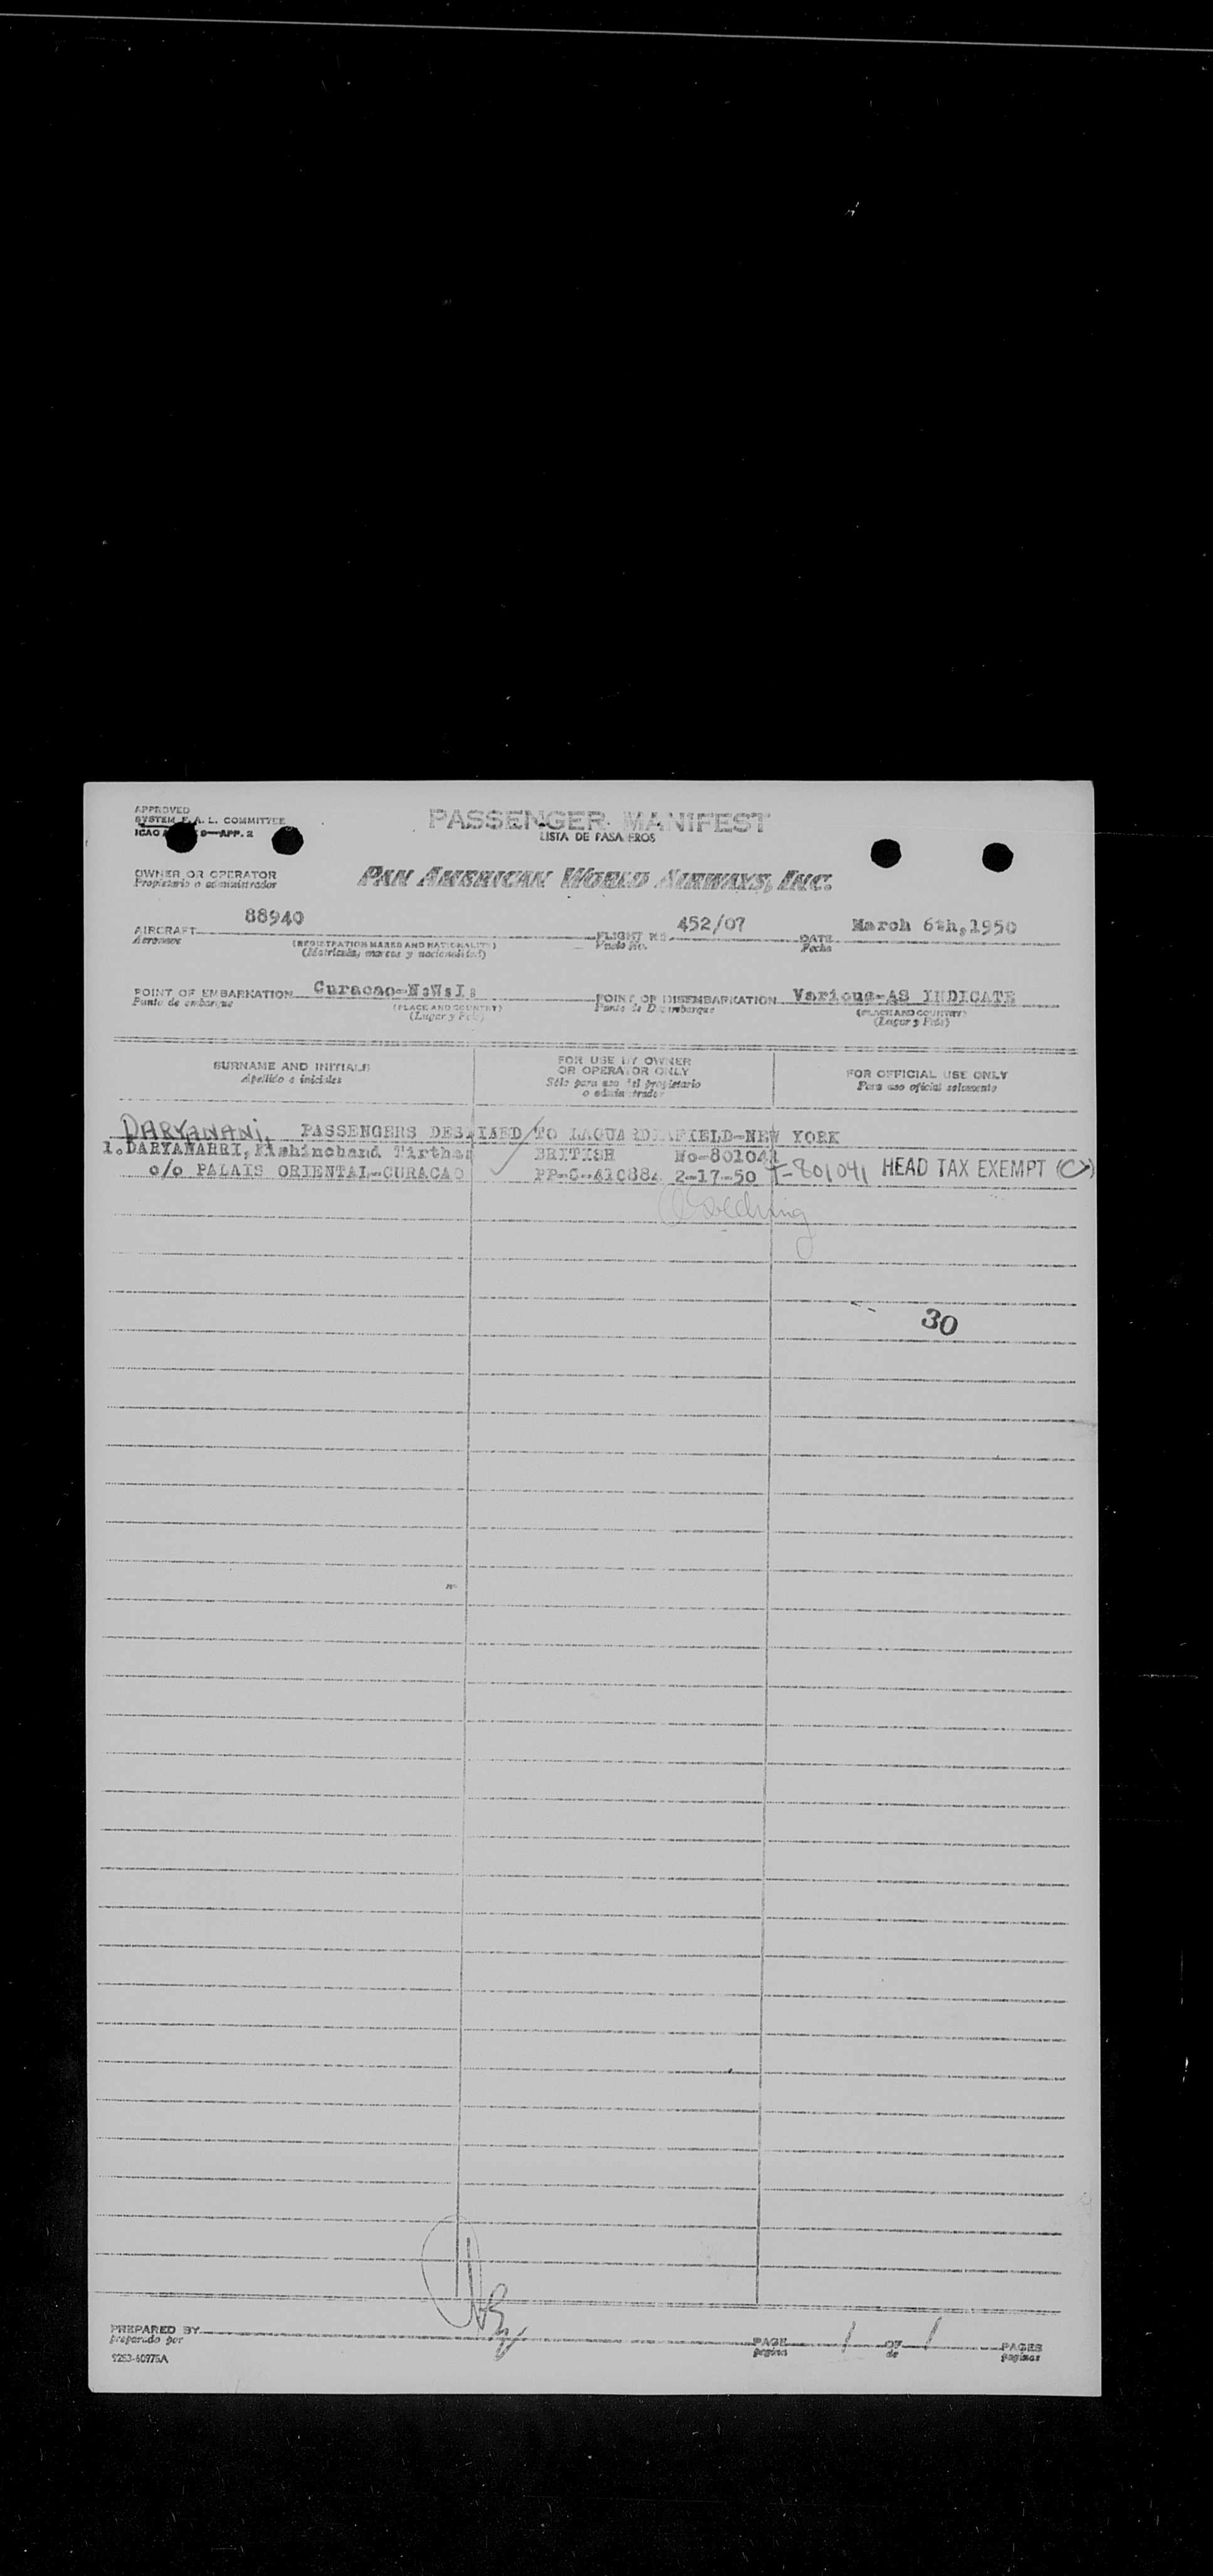 APPROVED
SYSTEM F.A.L. COMMITTEE
ICAO 9—APP. 2
PASSENGER MANIFEST
LISTA DE PASAJEROS
OWNER OR OPERATOR
Propietario o administrador
PAN AMERICAN WORLD AIRWAYS, INC.
AIRCRAFT 88940 FLIGHT No. 452/07 DATE March 6th,1950
Aeronave (REGISTRATION MARKS AND NATIONALITY) Vuelo No. Fecha
(Matrícula, marcas y nacionalidad)
POINT OF EMBARKATION Curacao-N.W.I. POINT OF DISEMBARKATION Various-AS INDICATE
Punto de embarque (PLACE AND COUNTRY) Punto de Desembarque (PLACE AND COUNTRY)
(Lugar y País) (Lugar y País)
SURNAME AND INITIALS FOR USE BY OWNER OR OPERATOR ONLY FOR OFFICIAL USE ONLY
Apellido e iniciales Sólo para uso del propietario o administrador Para uso oficial solamente
DARYANANI, PASSENGERS DESTINED TO LAGUARDIA FIELD-NEW YORK
1.DARYANARRI, Kishinchand Tirthas BRITISH No-801041
c/o PALAIS ORIENTAL-CURACAO PP-C-410884 2-17-50 T-801041 HEAD TAX EXEMPT (C)
30
PREPARED BY PAGE 1 OF 1 PAGES
preparado por pagina de paginas
9253-60975A